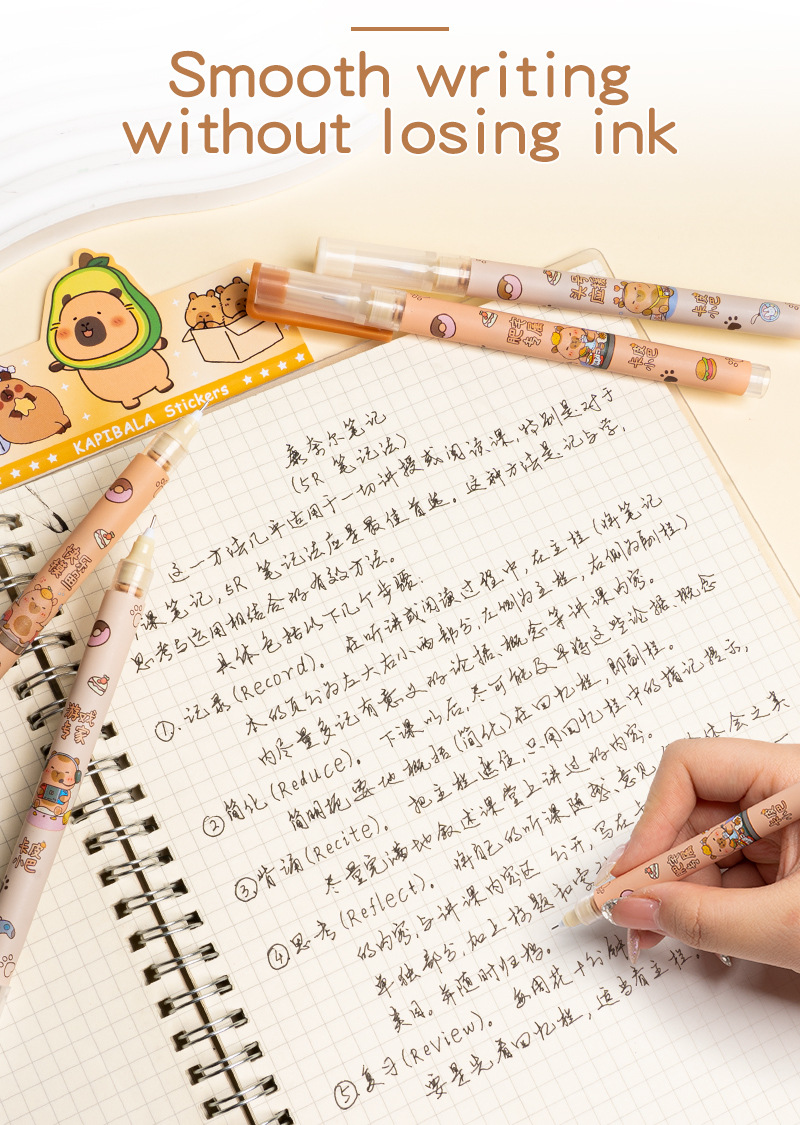 Smooth writing
without losing ink
KAPIBALA Stickers
头号
卡皮
巴
肥宅
专属
卡皮
巴
康奈尔笔记
(5R 笔记法)
这一方法几乎适用于一切讲授或阅读课,特别是对于
课笔记,5R 笔记法应是最佳首选。这种方法是记与学,
思考与运用相结合的有效方法。
具体包括以下几个步骤:
①.记录(Record)。在听讲或阅读过程中,在主栏(将笔记
本的页分为左大右小两部分,左侧为主栏,右侧为副栏)
内尽量多记有意义的论据、概念等讲课内容。
②简化(Reduce)。下课以后,尽可能及早将这些论据、概念
简明扼要地概括(简化)在回忆栏,即副栏。
③背诵(Recite)。把主栏遮住,只用回忆栏中的摘记提示,
尽量完满地叙述课堂上讲过的内容。
④思考(Reflect)。将自己的听课随感、意见、体会之类
的内容,与讲课内容区分开,写在
单独部分,加上标题和
类同。并随时归档。
⑤.复习(Review)。每周花十分
要是先看回忆栏,适当看主栏。